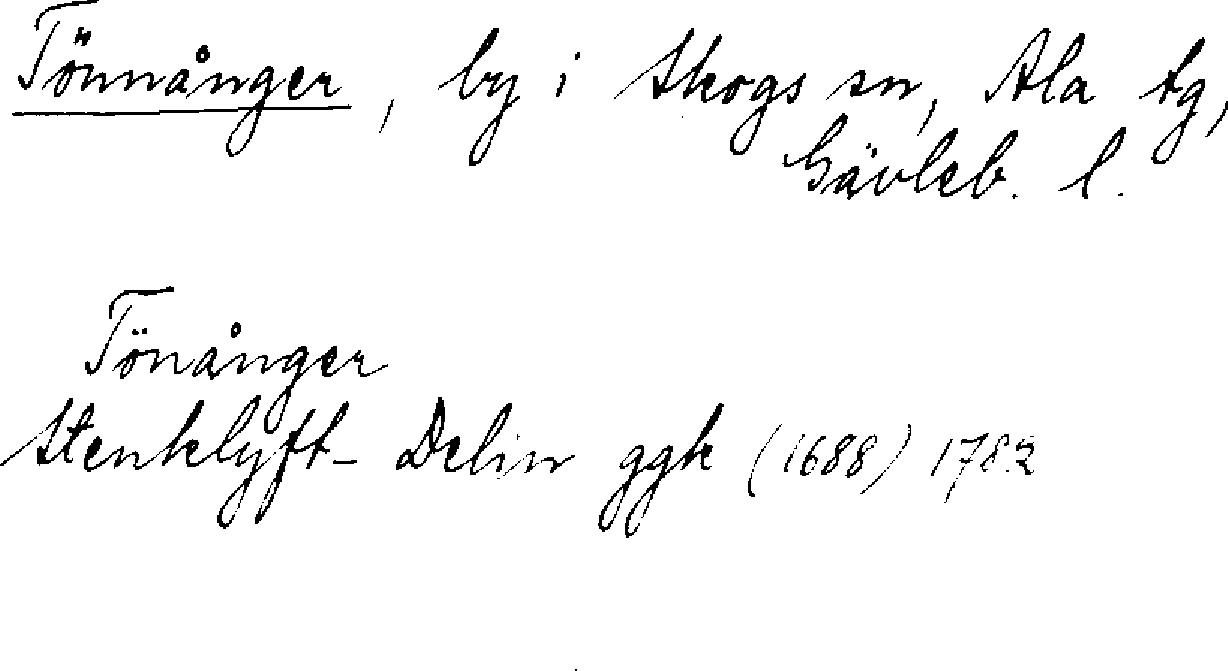 Tönnånger, by i Skogs sn, Ala tg,
Gävleb. l.
Tönånger
Stenklyft- Delin ggk (1688) 1782